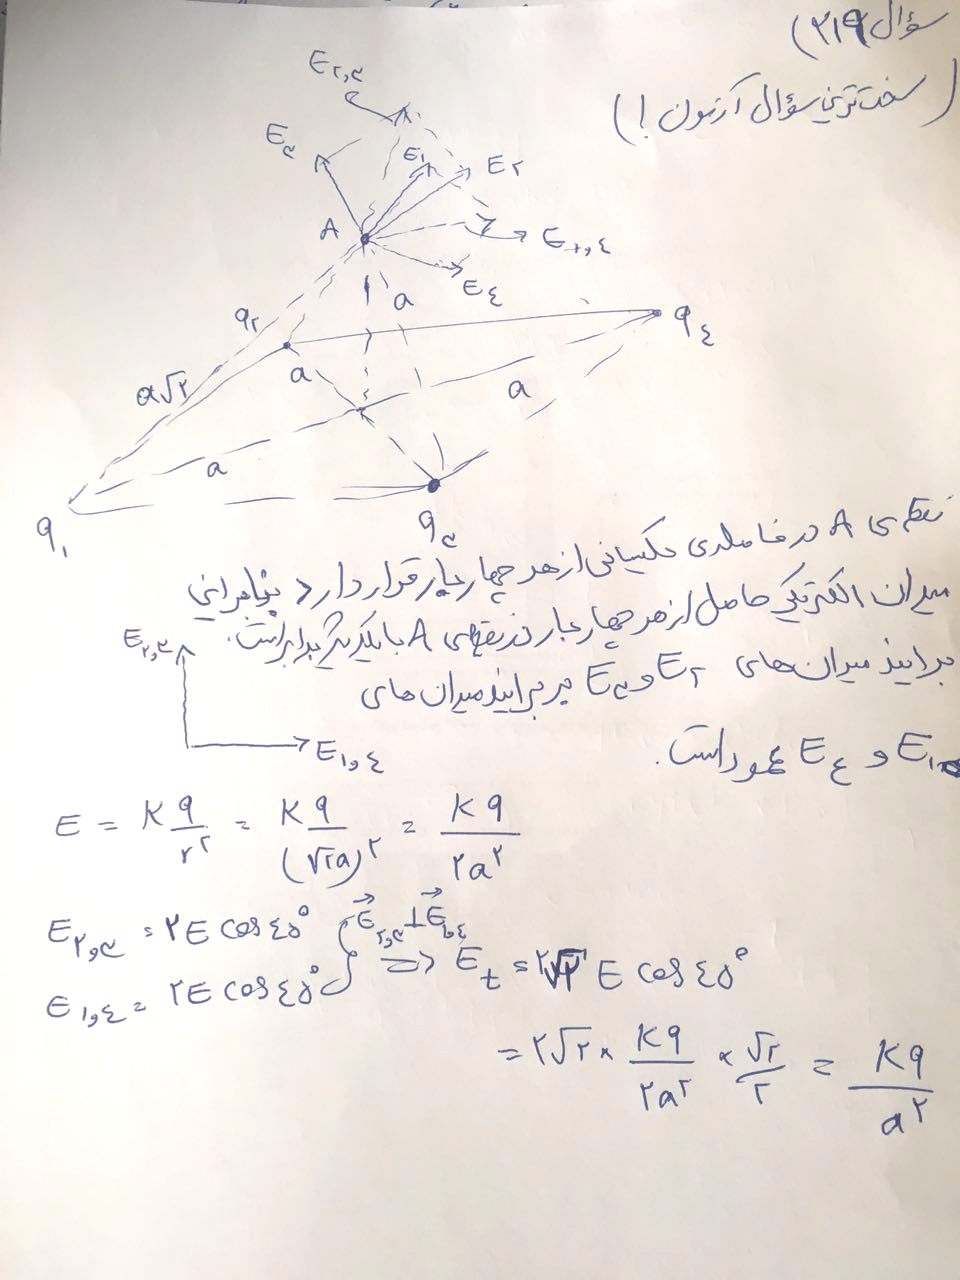 سؤال ۲۱۹)
(سخت‌ترین سؤال آزمون!)
E۲,۳
E۳
E۱
E۲
A
E۱,۴
E۴
a
q۲
q۴
a√۲
a
a
a
q۱
q۳
نقطه‌ی A در فاصله‌ی یکسانی از هر چهار بار قرار دارد بنابراین
میدان الکتریکی حاصل از هر چهار بار در نقطه‌ی A با یکدیگر برابر است.
برایند میدان‌های E۲ و E۳ بر برایند میدان‌های
E۱ و E۴ عمود است.
E۲,۳
E۱,۴
E = K q / r۲ = K q / (√۲a)۲ = K q / ۲a۲
E۲,۳ = ۲E cos ۴۵°
E۱,۴ = ۲E cos ۴۵°
E۲,۳ ⊥ E۱,۴ ⇒ Et = ۲√۲ E cos ۴۵°
= ۲√۲ × K q / ۲a۲ × √۲ / ۲ = K q / a۲